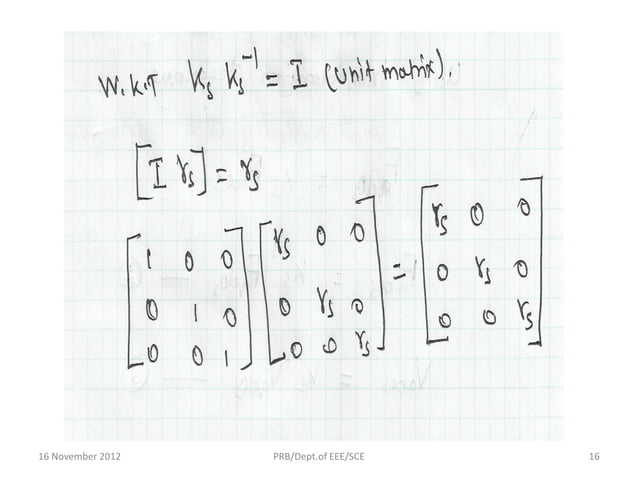 W.K.T Ks Ks⁻¹ = I (Unit matrix).
[I rs] = rs
[1 0 0] [rs 0 0] = [rs 0 0]
[0 1 0] [0 rs 0] [0 rs 0]
[0 0 1] [0 0 rs] [0 0 rs]
16 November 2012 PRB/Dept.of EEE/SCE 16